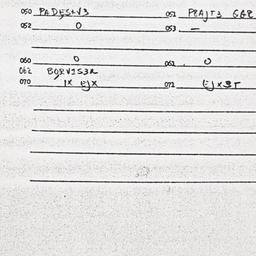 050 PADESAV3 051 PRAJT3 GAR
052 0 053 —
060 0 061. 0
062 BORVIS3R
070 1X EJX 071 EJX3T